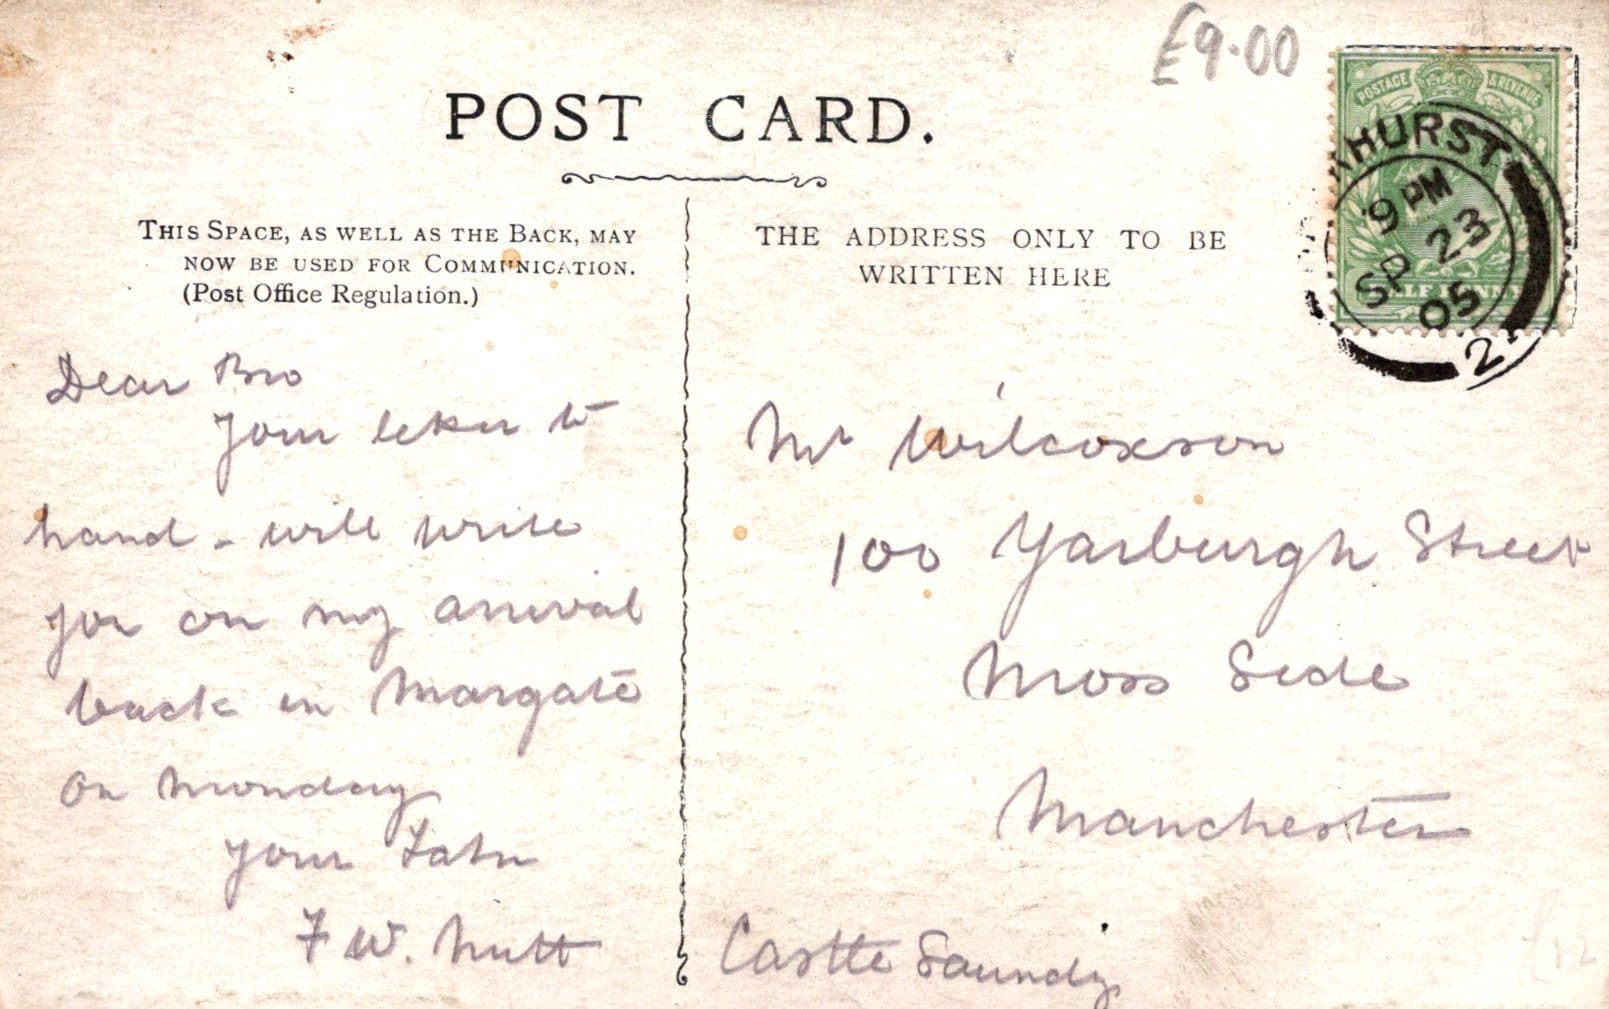 £9.00
POST CARD.
POSTAGE & REVENUE
HURST
9 PM
SP 23
05
2
THIS SPACE, AS WELL AS THE BACK, MAY
NOW BE USED FOR COMMUNICATION.
(Post Office Regulation.)
THE ADDRESS ONLY TO BE
WRITTEN HERE
Dear Bro
Your letter to
hand - will write
you on my arrival
back in Margate
on Monday
your
F W. Nutt
Mr Wilcoxson
100 Yarburgh Street
Moss Side
Manchester
Castle Saundy
£12